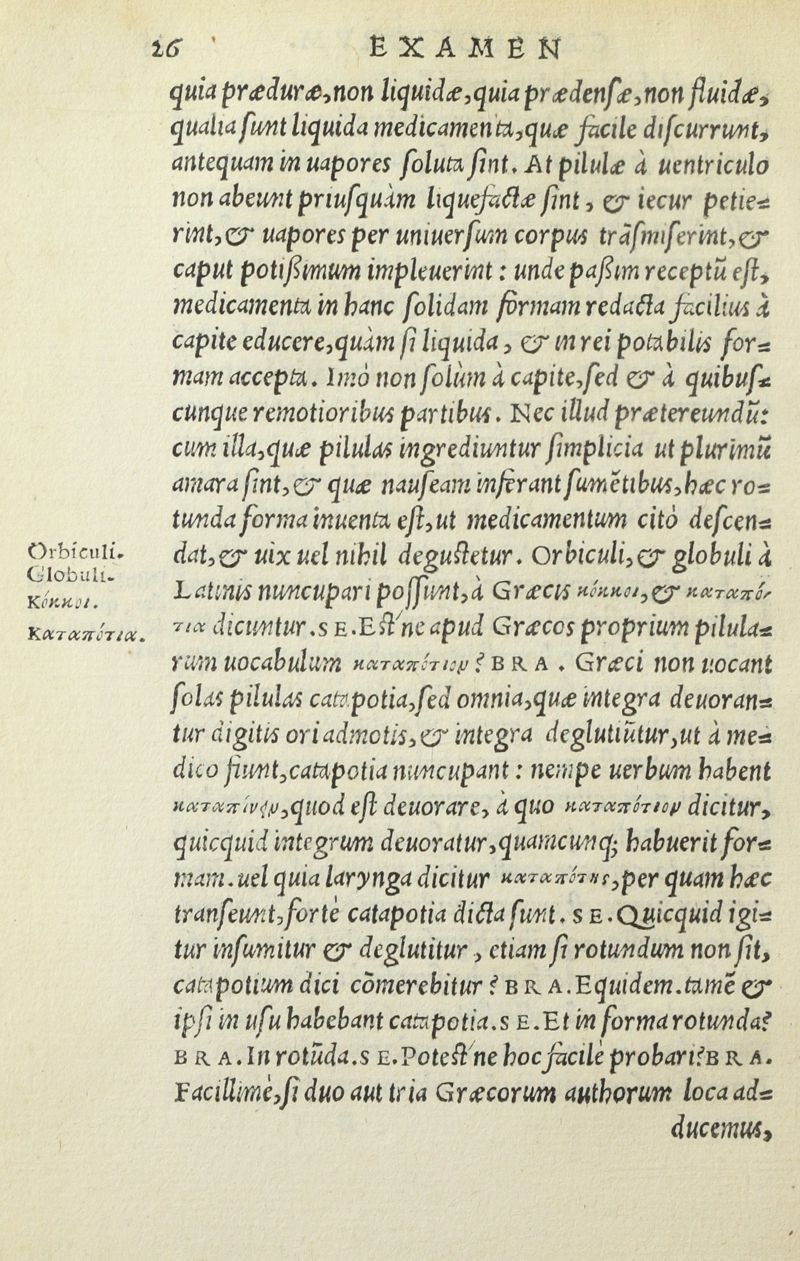 26 EXAMEN
quia præduræ, non liquidæ, quia prædensæ, non fluidæ,
qualia sunt liquida medicamenta, quæ facile discurrunt,
antequam in uapores soluta sint. At pilulæ à uentriculo
non abeunt priusquàm liquefactæ sint, & iecur petie=
rint, & uapores per uniuersum corpus trãsmiserint, &
caput potißimum impleuerint: unde paßim receptũ est,
medicamenta in hanc solidam formam redacta facilius à
capite educere, quàm si liquida, & in rei potabilis for=
mam accepta. Imò non solùm à capite, sed & à quibus=
cunque remotioribus partibus. Nec illud prætereundũ:
cum illa, quæ pilulas ingrediuntur simplicia ut plurimũ
amara sint, & quæ nauseam inferant sumẽtibus, hæc ro=
tunda forma inuenta est, ut medicamentum citò descen=
Orbiculi.
dat, & uix uel nihil degustetur. Orbiculi, & globuli à
Globuli.
Latinis nuncupari possunt, à Græcis κόκκοι, & καταπό-
Κόκκοι.
τια dicuntur. SE. Est'ne apud Græcos proprium pilula=
Καταπότια.
rum uocabulum καταπότιον? BRA. Græci non uocant
solas pilulas catapotia, sed omnia, quæ integra deuoran=
tur digitis ori admotis, & integra deglutiũtur, ut à me=
dico fiunt, catapotia nuncupant: nempe uerbum habent
καταπίνειν, quod est deuorare, à quo καταπότιον dicitur,
quicquid integrum deuoratur, quamcunq; habuerit for=
mam. uel quia larynga dicitur καταπότης, per quam hæc
transeunt, fortè catapotia dicta sunt. SE. Quicquid igi=
tur insumitur & deglutitur, etiam si rotundum non sit,
catapotium dici cõmerebitur? BRA. Equidem. tamẽ &
ipsi in usu habebant catapotia. SE. Et in forma rotunda?
BRA. In rotũda. SE. Potest'ne hoc facilè probari? BRA.
Facillimè, si duo aut tria Græcorum authorum loca ad=
ducemus,